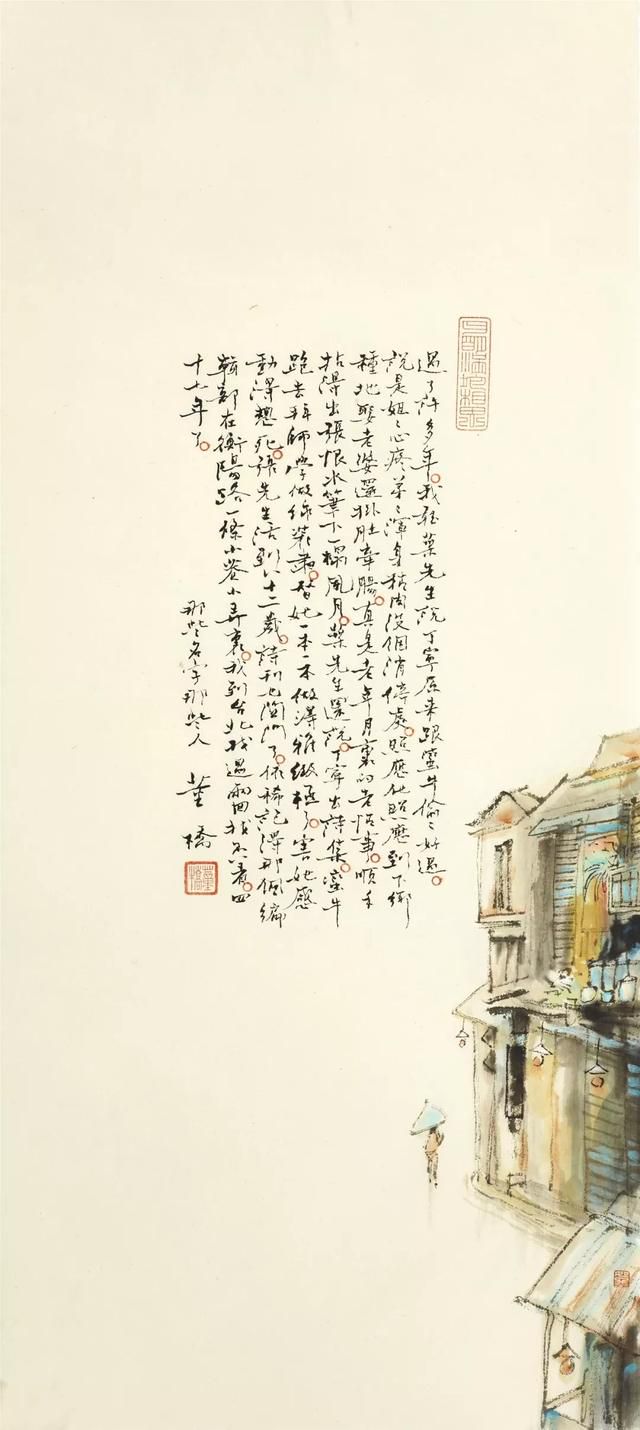 過了許多年。我聽葉先生說丁寧原來跟蠻牛偷〻好過。
說是姐〻心疼弟〻渾身精肉沒個消停處。照應他照應到下鄉
種地娶老婆還掛肚牽腸。真是老年月裏的老事。順手
拈得出張恨水筆下一風月。葉先生還說。丁寧出詩集蠻牛
跑去拜師學做線裝書。替她一本一本做得雅緻極了。害她感
動得想死。張先生活到八十二歲。詩刊也關門了。依稀記得那個編
輯部在衡陽路一條小巷小弄裏。我到台北找過兩回找不着。四
十七年了。
那些名字那些人 董橋
董橋